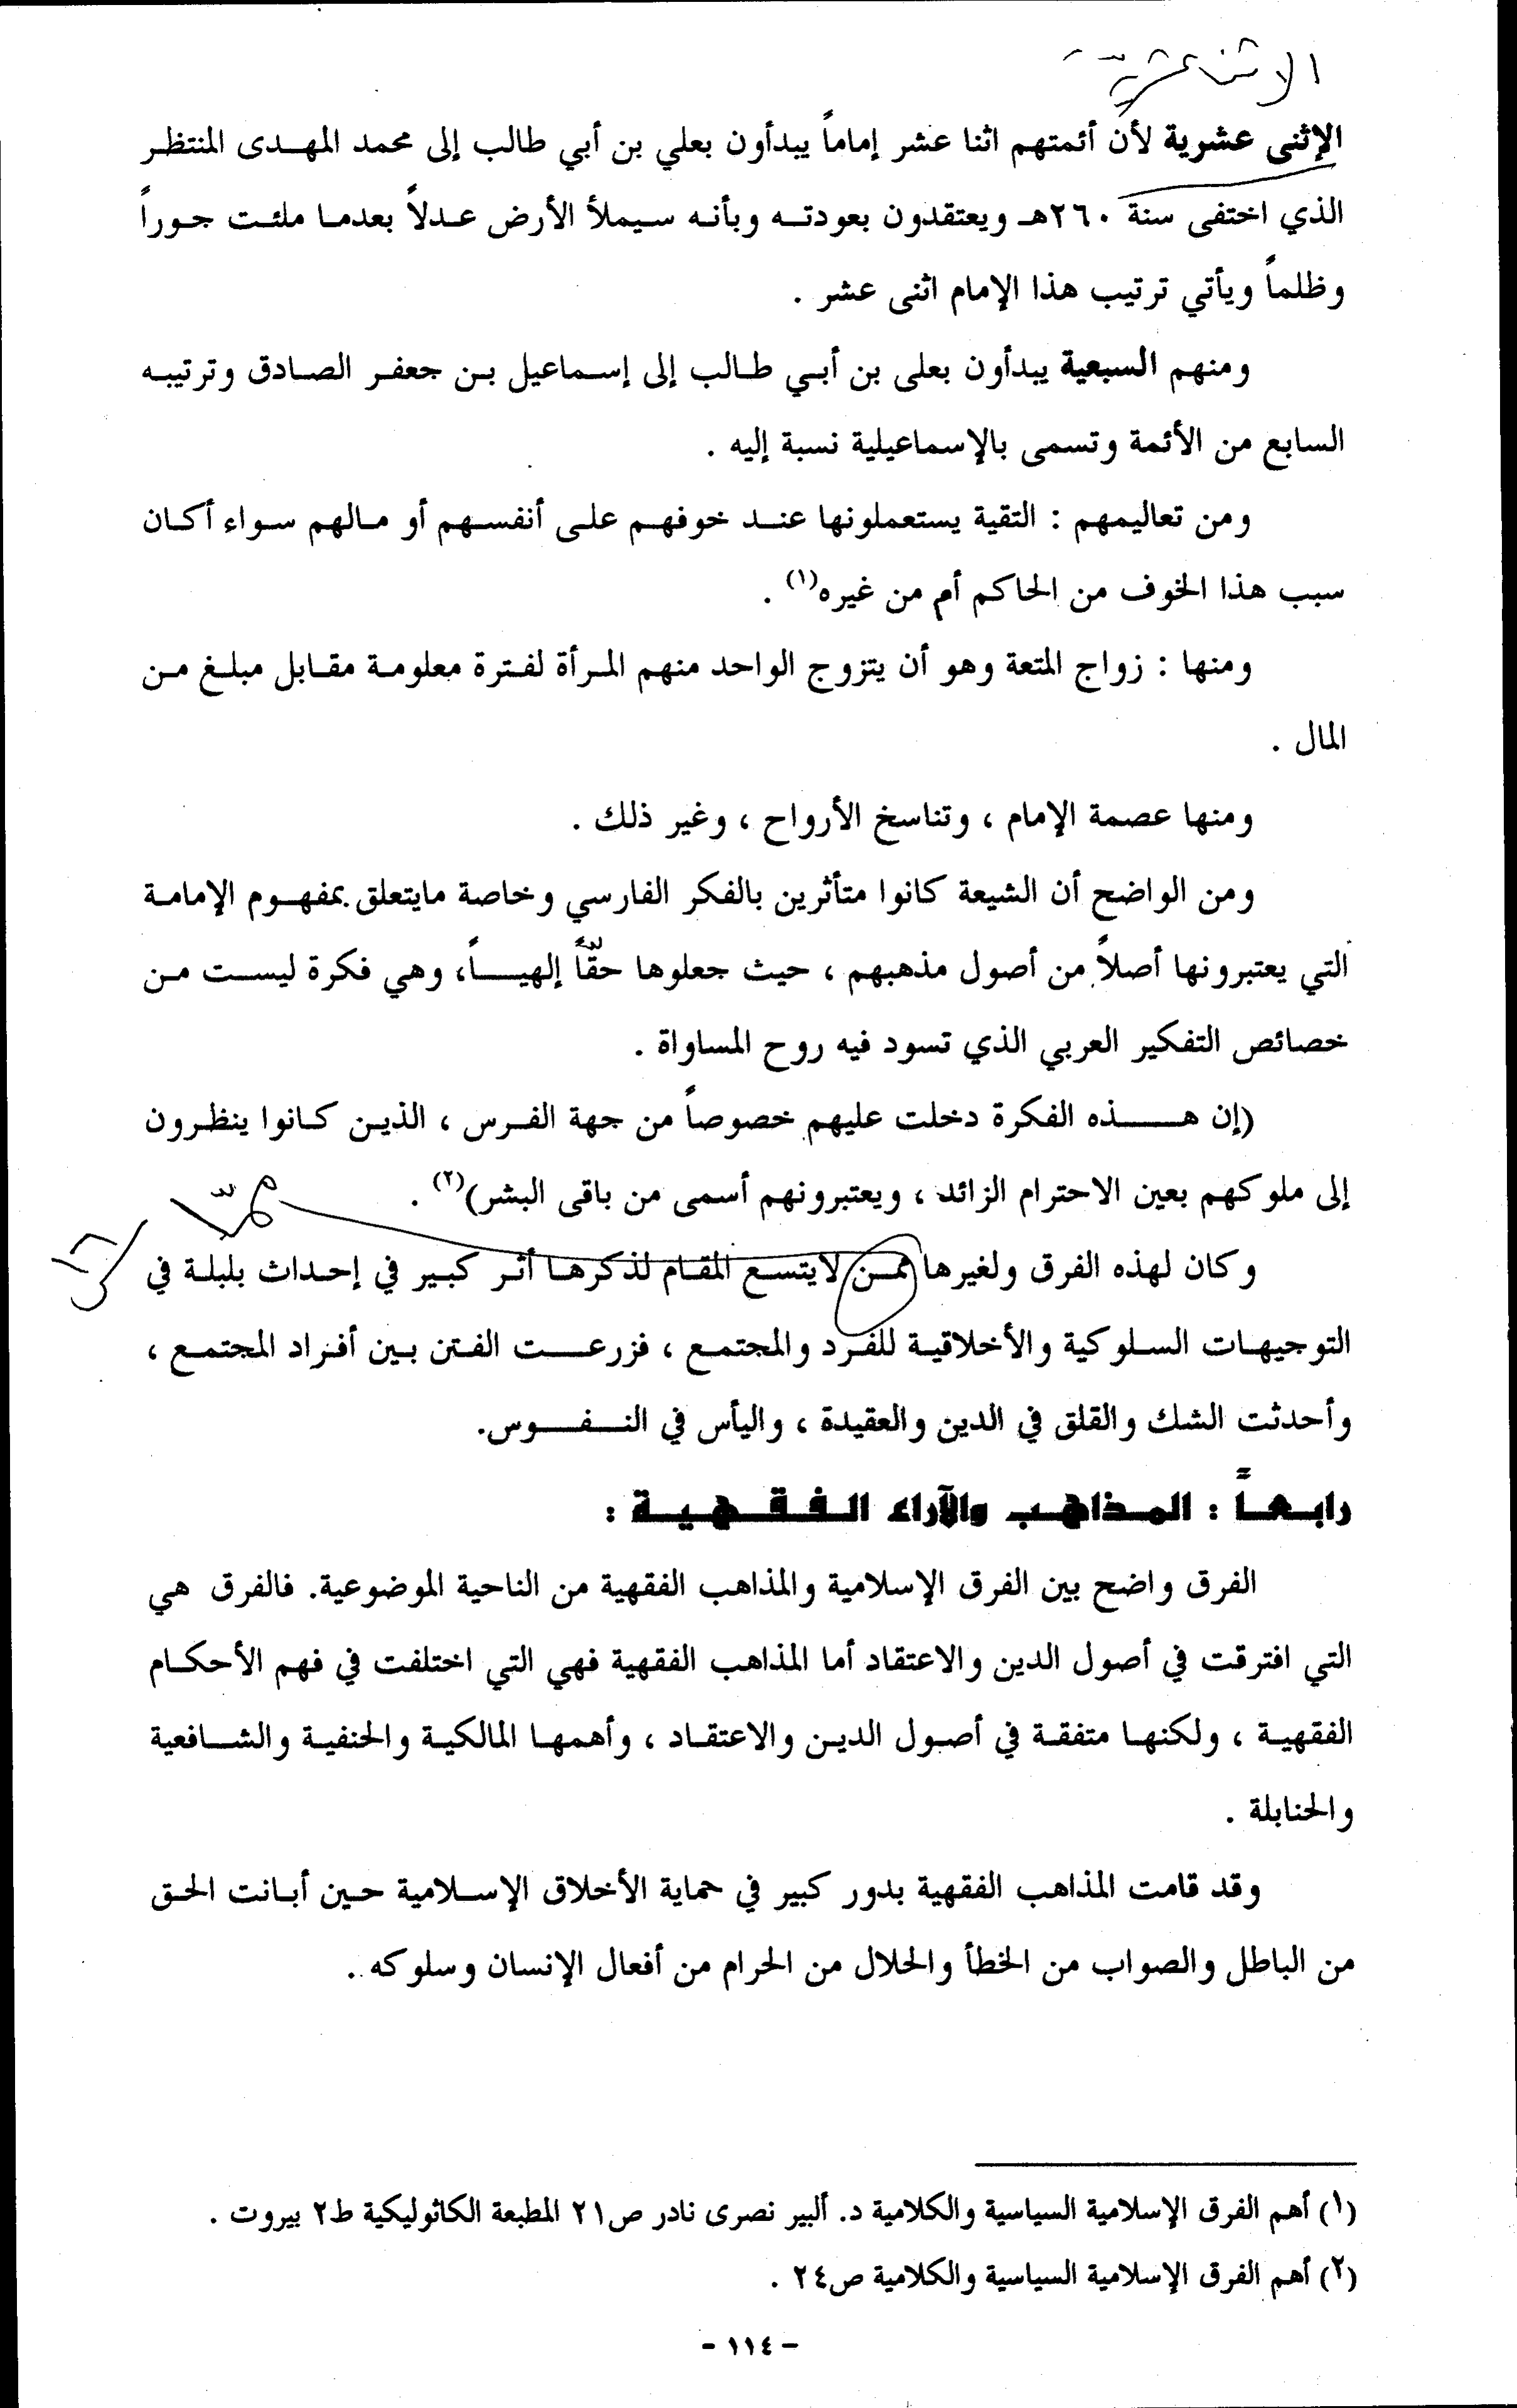 الاثناعشرية
الإثنى عشرية لأن أئمتهم اثنا عشر إماماً يبدأون بعلي بن أبي طالب إلى محمد المهدى المنتظر
الذي اختفى سنة ٢٦٠هـ ويعتقدون بعودته وبأنه سيملأ الأرض عدلاً بعدما ملئت جوراً
وظلماً ويأتي ترتيب هذا الإمام اثنى عشر .
ومنهم السبعية يبدأون بعلى بن أبي طالب إلى إسماعيل بن جعفر الصادق وترتيبه
السابع من الأئمة وتسمى بالإسماعيلية نسبة إليه .
ومن تعاليمهم : التقية يستعملونها عند خوفهم على أنفسهم أو مالهم سواء أكان
سبب هذا الخوف من الحاكم أم من غيره(١) .
ومنها : زواج المتعة وهو أن يتزوج الواحد منهم المرأة لفترة معلومة مقابل مبلغ من
المال .
ومنها عصمة الإمام ، وتناسخ الأرواح ، وغير ذلك .
ومن الواضح أن الشيعة كانوا متأثرين بالفكر الفارسي وخاصة مايتعلق بمفهوم الإمامة
التي يعتبرونها أصلاً من أصول مذهبهم ، حيث جعلوها حقّاً إلهيـــاً، وهي فكرة ليست من
خصائص التفكير العربي الذي تسود فيه روح المساواة .
(إن هـــــذه الفكرة دخلت عليهم خصوصاً من جهة الفرس ، الذين كانوا ينظرون
إلى ملوكهم بعين الاحترام الزائد ، ويعتبرونهم أسمى من باقى البشر)(٢) .
ممّا
وكان لهذه الفرق ولغيرها ممن لايتسع المقام لذكرها أثر كبير في إحداث بلبلة في
التوجيهات السلوكية والأخلاقية للفرد والمجتمع ، فزرعـــت الفتن بين أفراد المجتمع ،
وأحدثت الشك والقلق في الدين والعقيدة ، واليأس في النـــفـــوس.
رابـعـاً : المـذاهـب والآراء الـفـقـهـيـة :
الفرق واضح بين الفرق الإسلامية والمذاهب الفقهية من الناحية الموضوعية. فالفرق هي
التي افترقت في أصول الدين والاعتقاد أما المذاهب الفقهية فهي التي اختلفت في فهم الأحكام
الفقهية ، ولكنها متفقة في أصول الدين والاعتقاد ، وأهمها المالكية والحنفية والشافعية
والحنابلة .
وقد قامت المذاهب الفقهية بدور كبير في حماية الأخلاق الإسلامية حين أبانت الحق
من الباطل والصواب من الخطأ والحلال من الحرام من أفعال الإنسان وسلوكه .
(١) أهم الفرق الإسلامية السياسية والكلامية د. ألبير نصرى نادر ص٢١ المطبعة الكاثوليكية ط٢ بيروت .
(٢) أهم الفرق الإسلامية السياسية والكلامية ص٢٤ .
- ١١٤ -